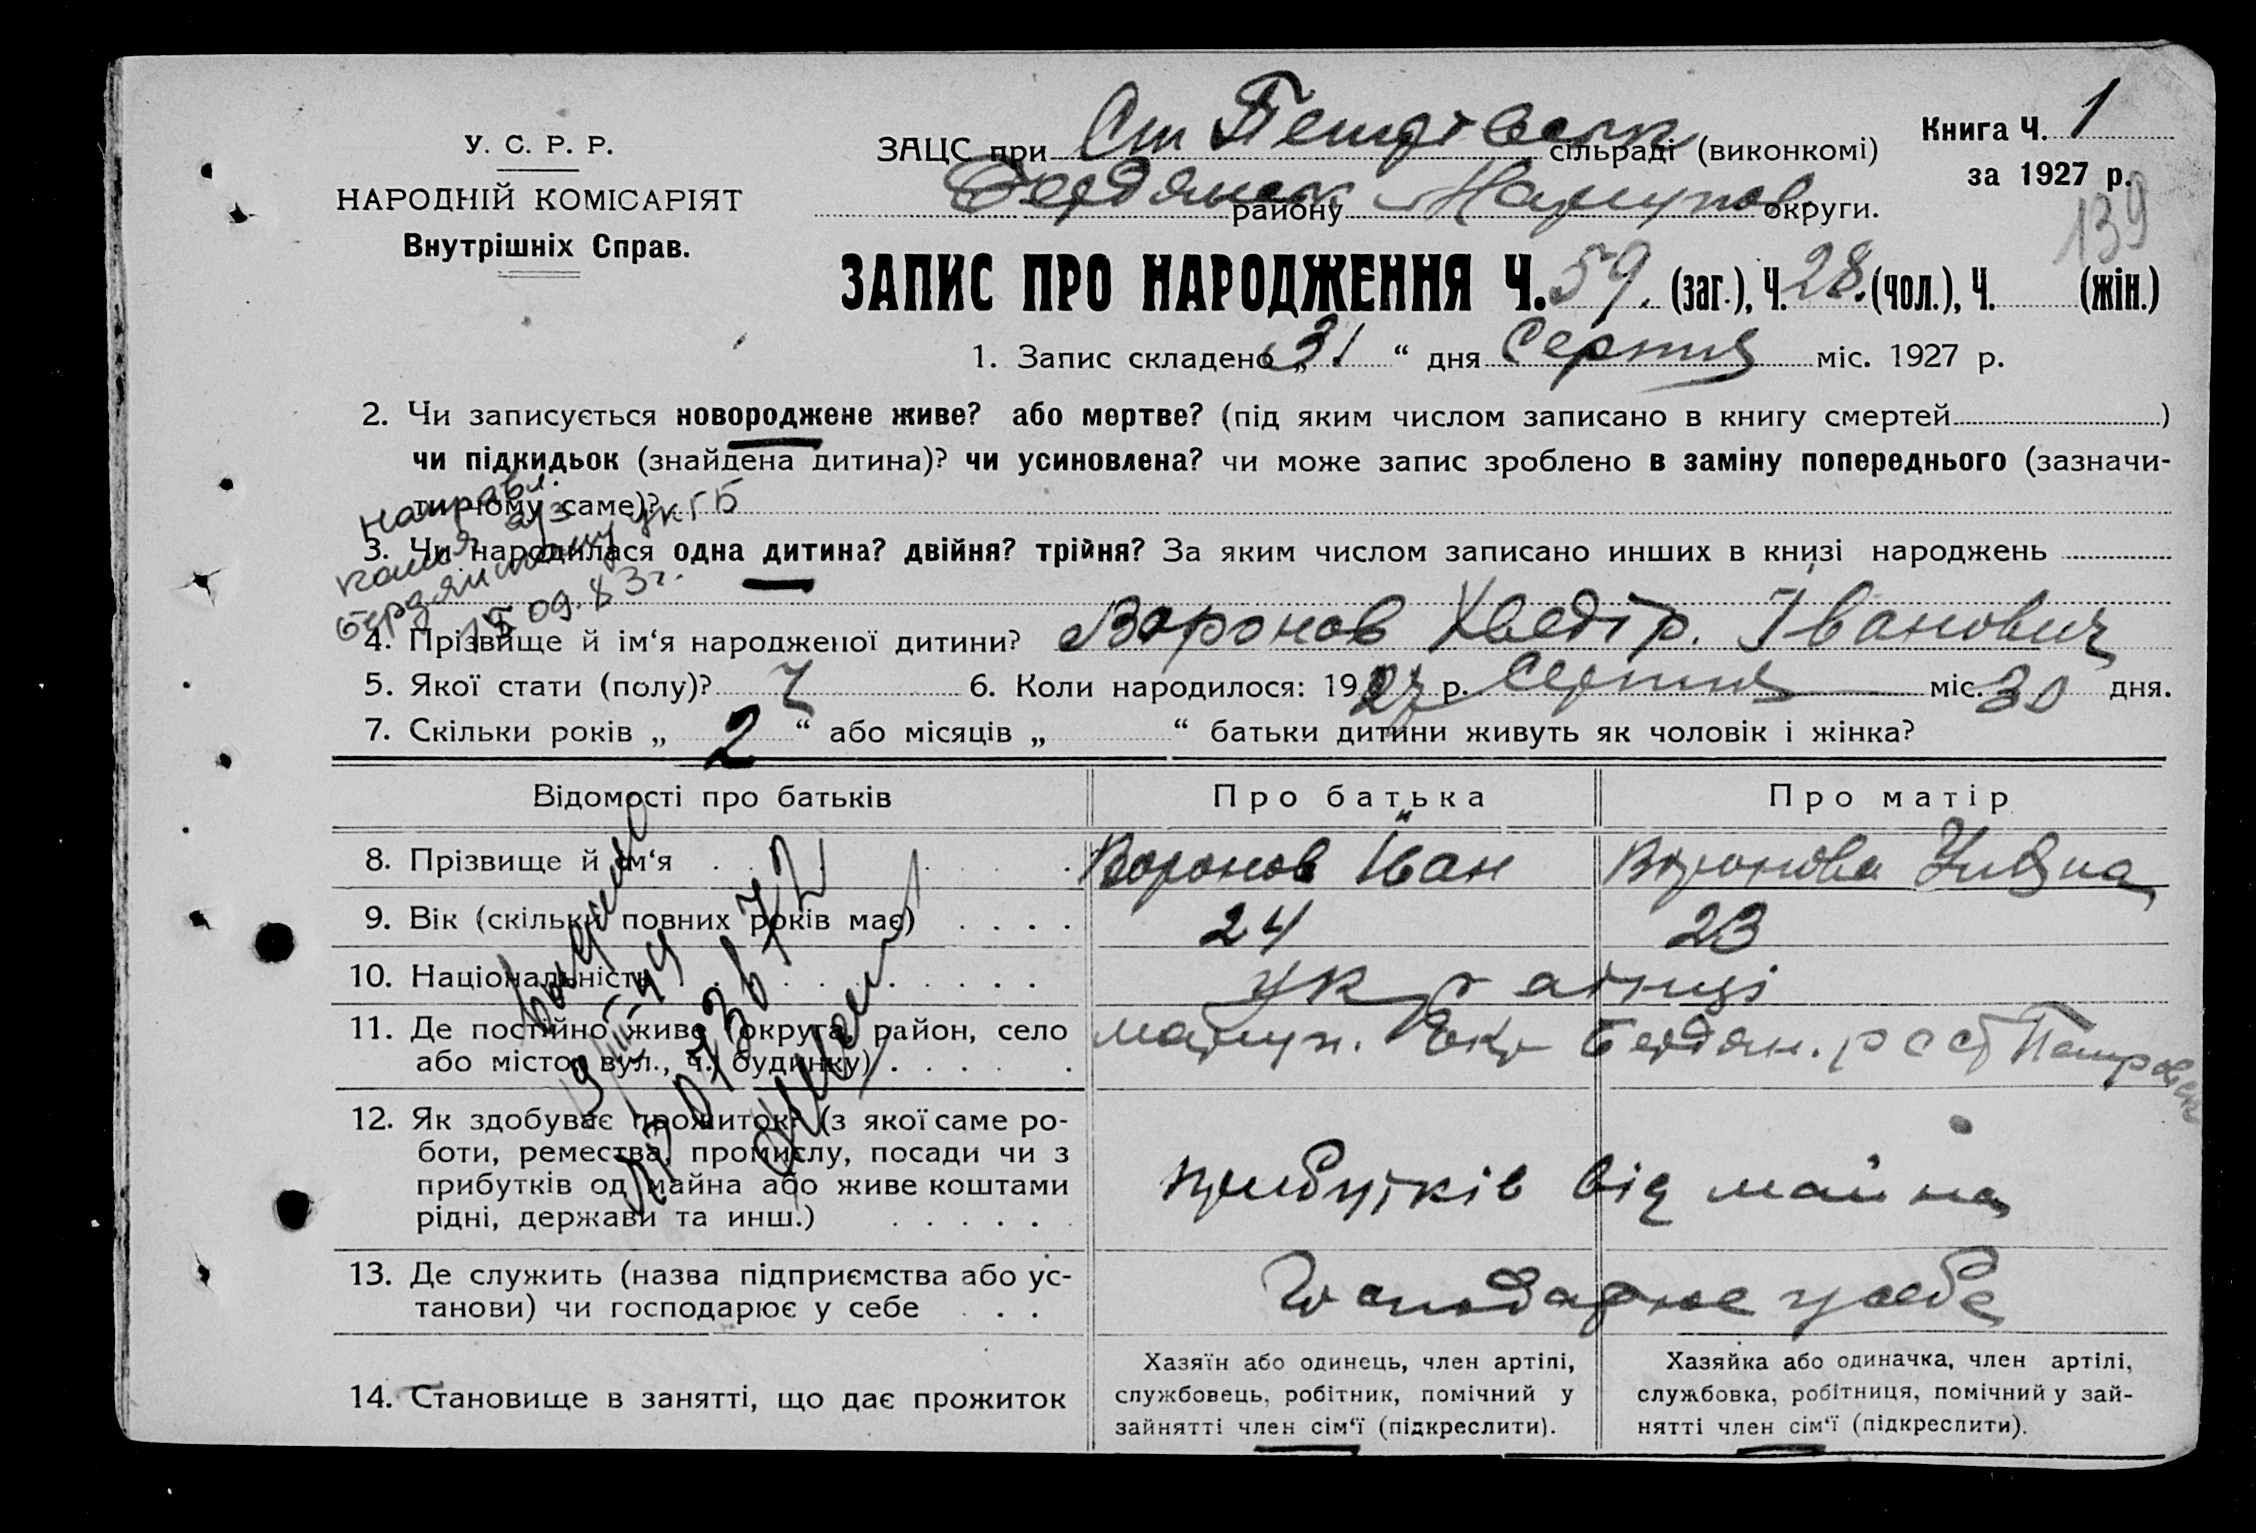 У. С. Р. Р.
НАРОДНІЙ КОМІСАРІЯТ
Внутрішніх Справ.
ЗАЦС при Ст Петрівськ сільраді (виконкомі)
Бердянськ району Маріупол округи.
Книга Ч. 1
за 1927 р.
139
ЗАПИС ПРО НАРОДЖЕННЯ Ч. 59. (заг.), Ч. 28. (чол.), Ч. (жін.)
1. Запис складено „31“ дня Серпня міс. 1927 р.
2. Чи записується новороджене живе? або мертве? (під яким числом записано в книгу смертей )
чи підкидьок (знайдена дитина)? чи усиновлена? чи може запис зроблено в заміну попереднього (зазначи-
ти чому саме)?
3. Чи народилася одна дитина? двійня? трійня? За яким числом записано инших в книзі народжень
направл.
копия а/з
Бердянскому УКГБ
15 09. 83 г.
4. Прізвище й ім‘я народженої дитини? Воронов Хведір. Іванович
5. Якої стати (полу)? Ч 6. Коли народилося: 1927 р. Серпня міс. 30 дня.
7. Скільки років „ 2 “ або місяців „ “ батьки дитини живуть як чоловік і жінка?
Відомості про батьків Про батька Про матір
8. Прізвище й ім‘я Воронов Іван Воронова
9. Вік (скільки повних років має) 24 23
10. Національність українці
11. Де постійно живе (округа, район, село
або місто, вул., ч. будинку) Маріуп. Окр Бердян. р с Ст Петровськ
12. Як здобуває прожиток? (з якої саме ро-
боти, ремества, промислу, посади чи з
прибутків од майна або живе коштами
рідні, держави та инш.) прибутків від майна
13. Де служить (назва підприємства або ус-
танови) чи господарює у себе Господарює у себе
14. Становище в занятті, що дає прожиток
Хазяїн або одинець, член артілі,
службовець, робітник, помічний у
зайнятті член сім‘ї (підкреслити).
Хазяйка або одиначка, член артілі,
службовка, робітниця, помічний у зай-
нятті член сім‘ї (підкреслити).